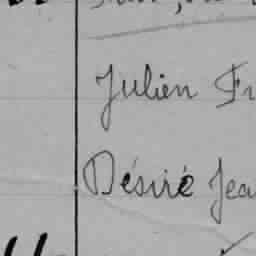 Julien Fr
Désiré Jea